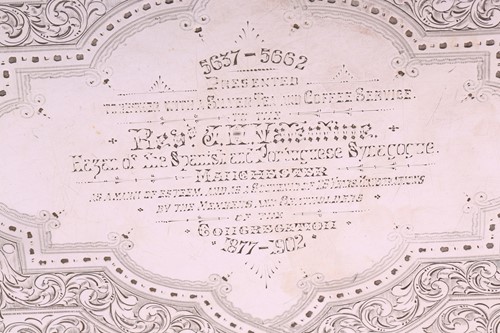 5637-5662
PRESENTED
TOGETHER WITH A SILVER TEA AND COFFEE SERVICE
TO THE
Revd. J. H. Valentine.
Hazan of the Spanish and Portuguese Synagogue.
MANCHESTER
AS A MARK OF ESTEEM, AND AS A SOUVENIR OF 25 YEARS
BY THE MEMBERS AND SEATHOLDERS
OF THE
CONGREGATION
1877-1902